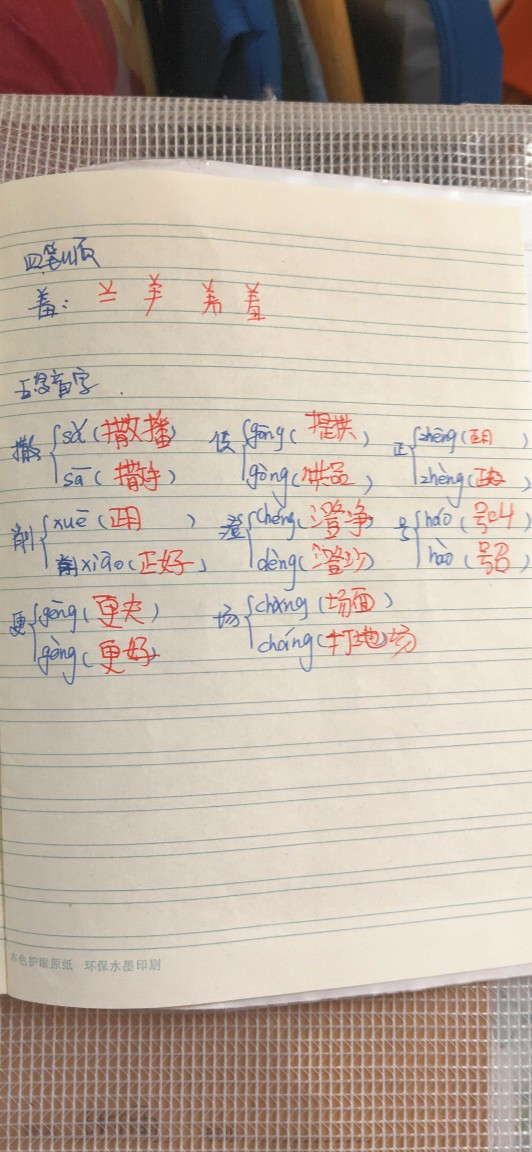 四笔顺
羞: 䒑 羊 羞 羞
五多音字.
撒 sǎ (撒播) 供 gōng (提供) 正 zhēng (正月)
sā (撒净) gòng (供品) zhèng (正好)
削 xuē (正月) 澄 chéng (澄净) 号 háo (号叫)
削xiāo (正好) dèng (澄沙) hào (号召)
更 gēng (更夫) 场 chǎng (场面)
gèng (更好) cháng (打地场)
本色护眼原纸 环保水墨印刷